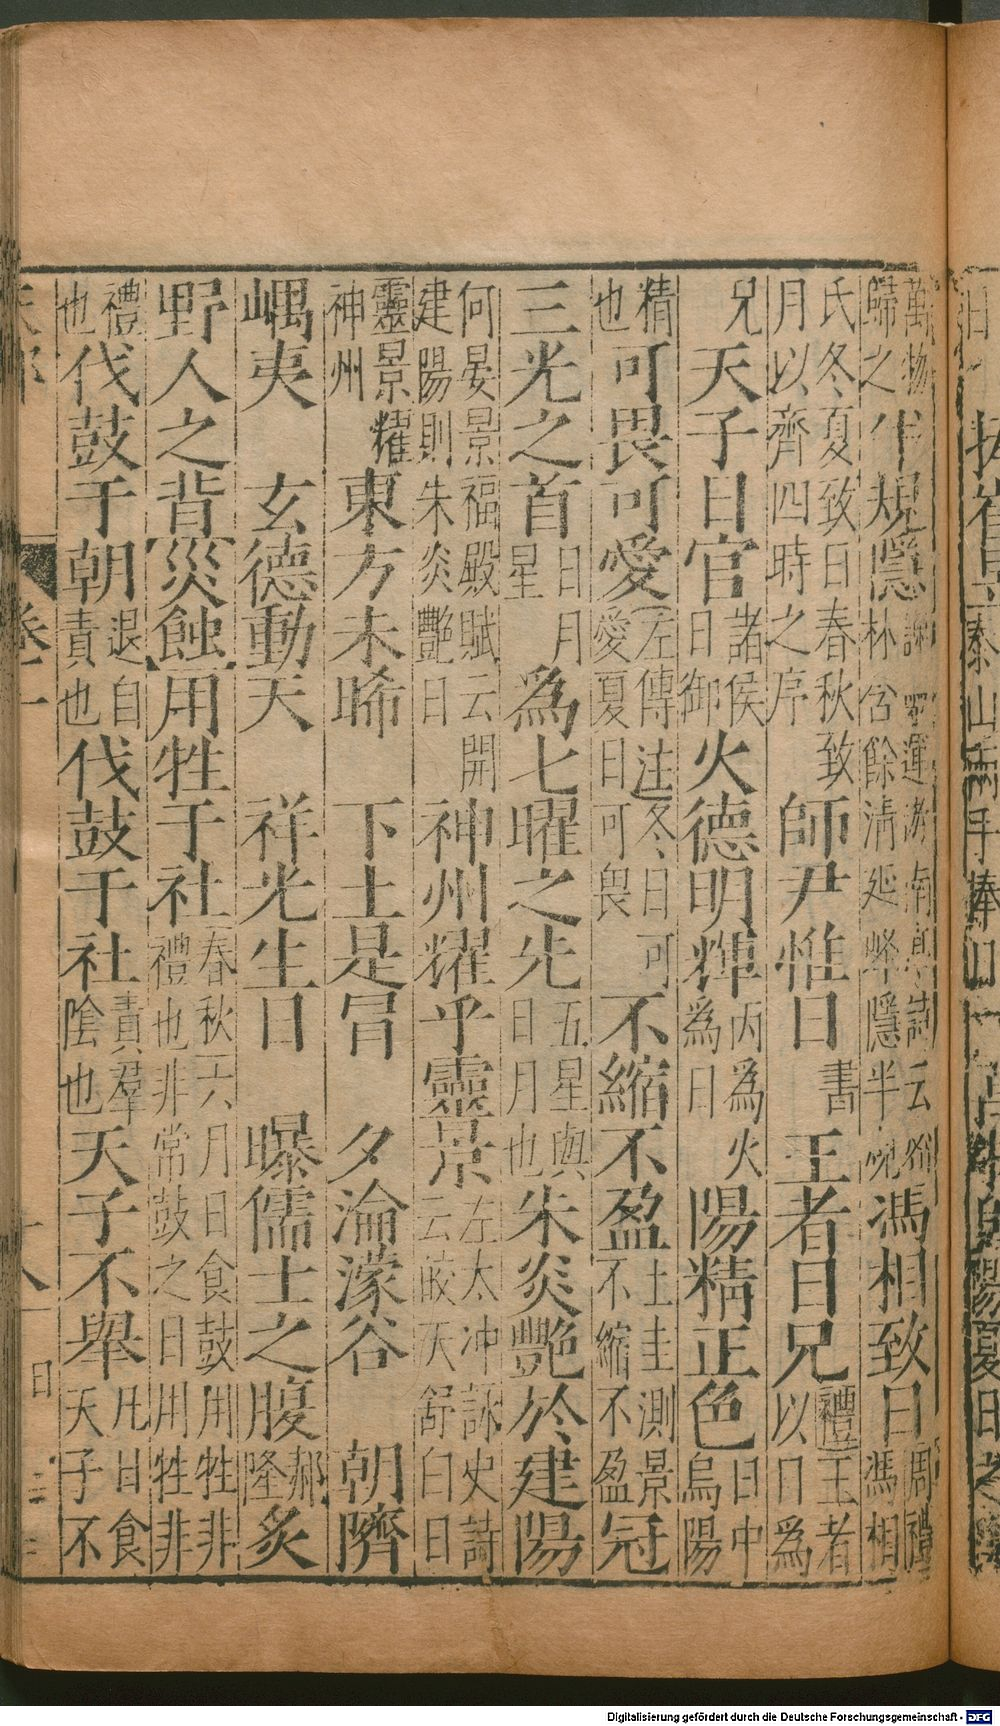 萬物歸之 半規隱 謝運游南亭詩云 林兮餘清 遠峰隱半規 馮相致日 周禮馮相
氏冬夏致日春秋致月以齊四時之序 師尹惟日 書 王者日兄 禮王者以日為
兄 天子日官 諸侯日御 火德明輝 丙為火為日 陽精正色 日中烏陽
精也 可畏可愛 左傳注冬日可愛夏日可畏 不縮不盈 土圭測景不縮不盈 冠
三光之首 日月星 為七曜之先 五星與日月也 朱炎艷於建陽
何晏景福殿賦云開建陽則朱炎艷日 神州耀乎靈景 左太冲詠史詩云皎天舒白日
靈景耀神州 東方未晞 下土是冒 夕淪濛谷 朝隮
嵎夷 玄德動天 祥光生日 曝儒士之腹 郝隆 炙
野人之背 災蝕 用牲于社 春秋六月日食鼓用牲非禮也非常鼓之日用牲非
禮也 伐鼓于朝 退自責也 伐鼓于社 責羣陰也 天子不舉 凡日食天子不
卷一
十八
日
Digitalisierung gefördert durch die Deutsche Forschungsgemeinschaft - DFG